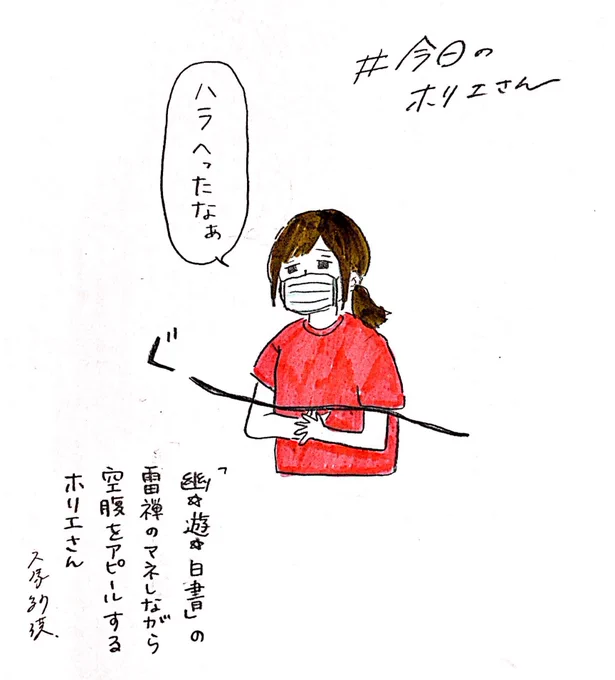 #今日の
ホリエさん
ハラへったなぁ
ぐ
「幽☆遊☆白書」の
雷禅のマネしながら
空腹をアピールする
ホリエさん